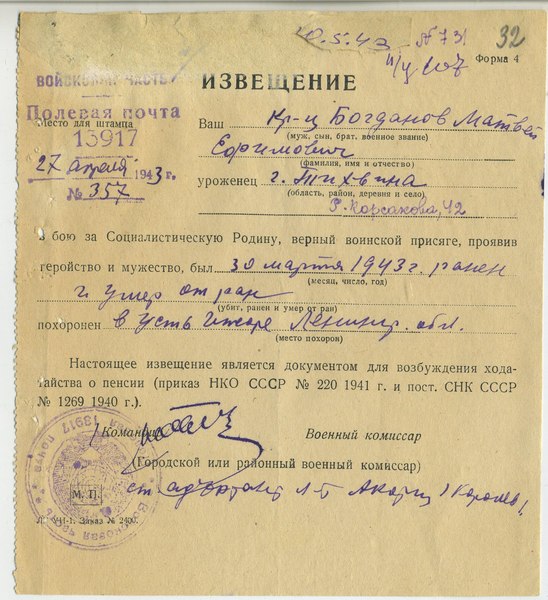 10.5.43 №731
32
Форма 4
ВОЙСКОВАЯ ЧАСТЬ
Полевая почта
Место для штампа
13917
27 апреля 1943 г.
№ 357
ИЗВЕЩЕНИЕ
Ваш кр-ц Богданов Матвей
(муж, сын, брат, военное звание)
Ефимович
(фамилия, имя и отчество)
уроженец г. Тихвина
(область, район, деревня и село)
Р. Корсакова, 42
в бою за Социалистическую Родину, верный воинской присяге, проявив
геройство и мужество, был 30 марта 1943 г. ранен
(месяц, число, год)
и умер от ран
(убит, ранен и умер от ран)
похоронен в Усть Ижоре Ленингр. обл.
(место похорон)
Настоящее извещение является документом для возбуждения хода-
тайства о пенсии (приказ НКО СССР № 220 1941 г. и пост. СНК СССР
№ 1269 1940 г.).
Командир
Военный комиссар
(Городской или районный военный комиссар)
М. П.
ст. адъютант л-т
Заказ № 2400.
Войсковая часть полевая почта 13917